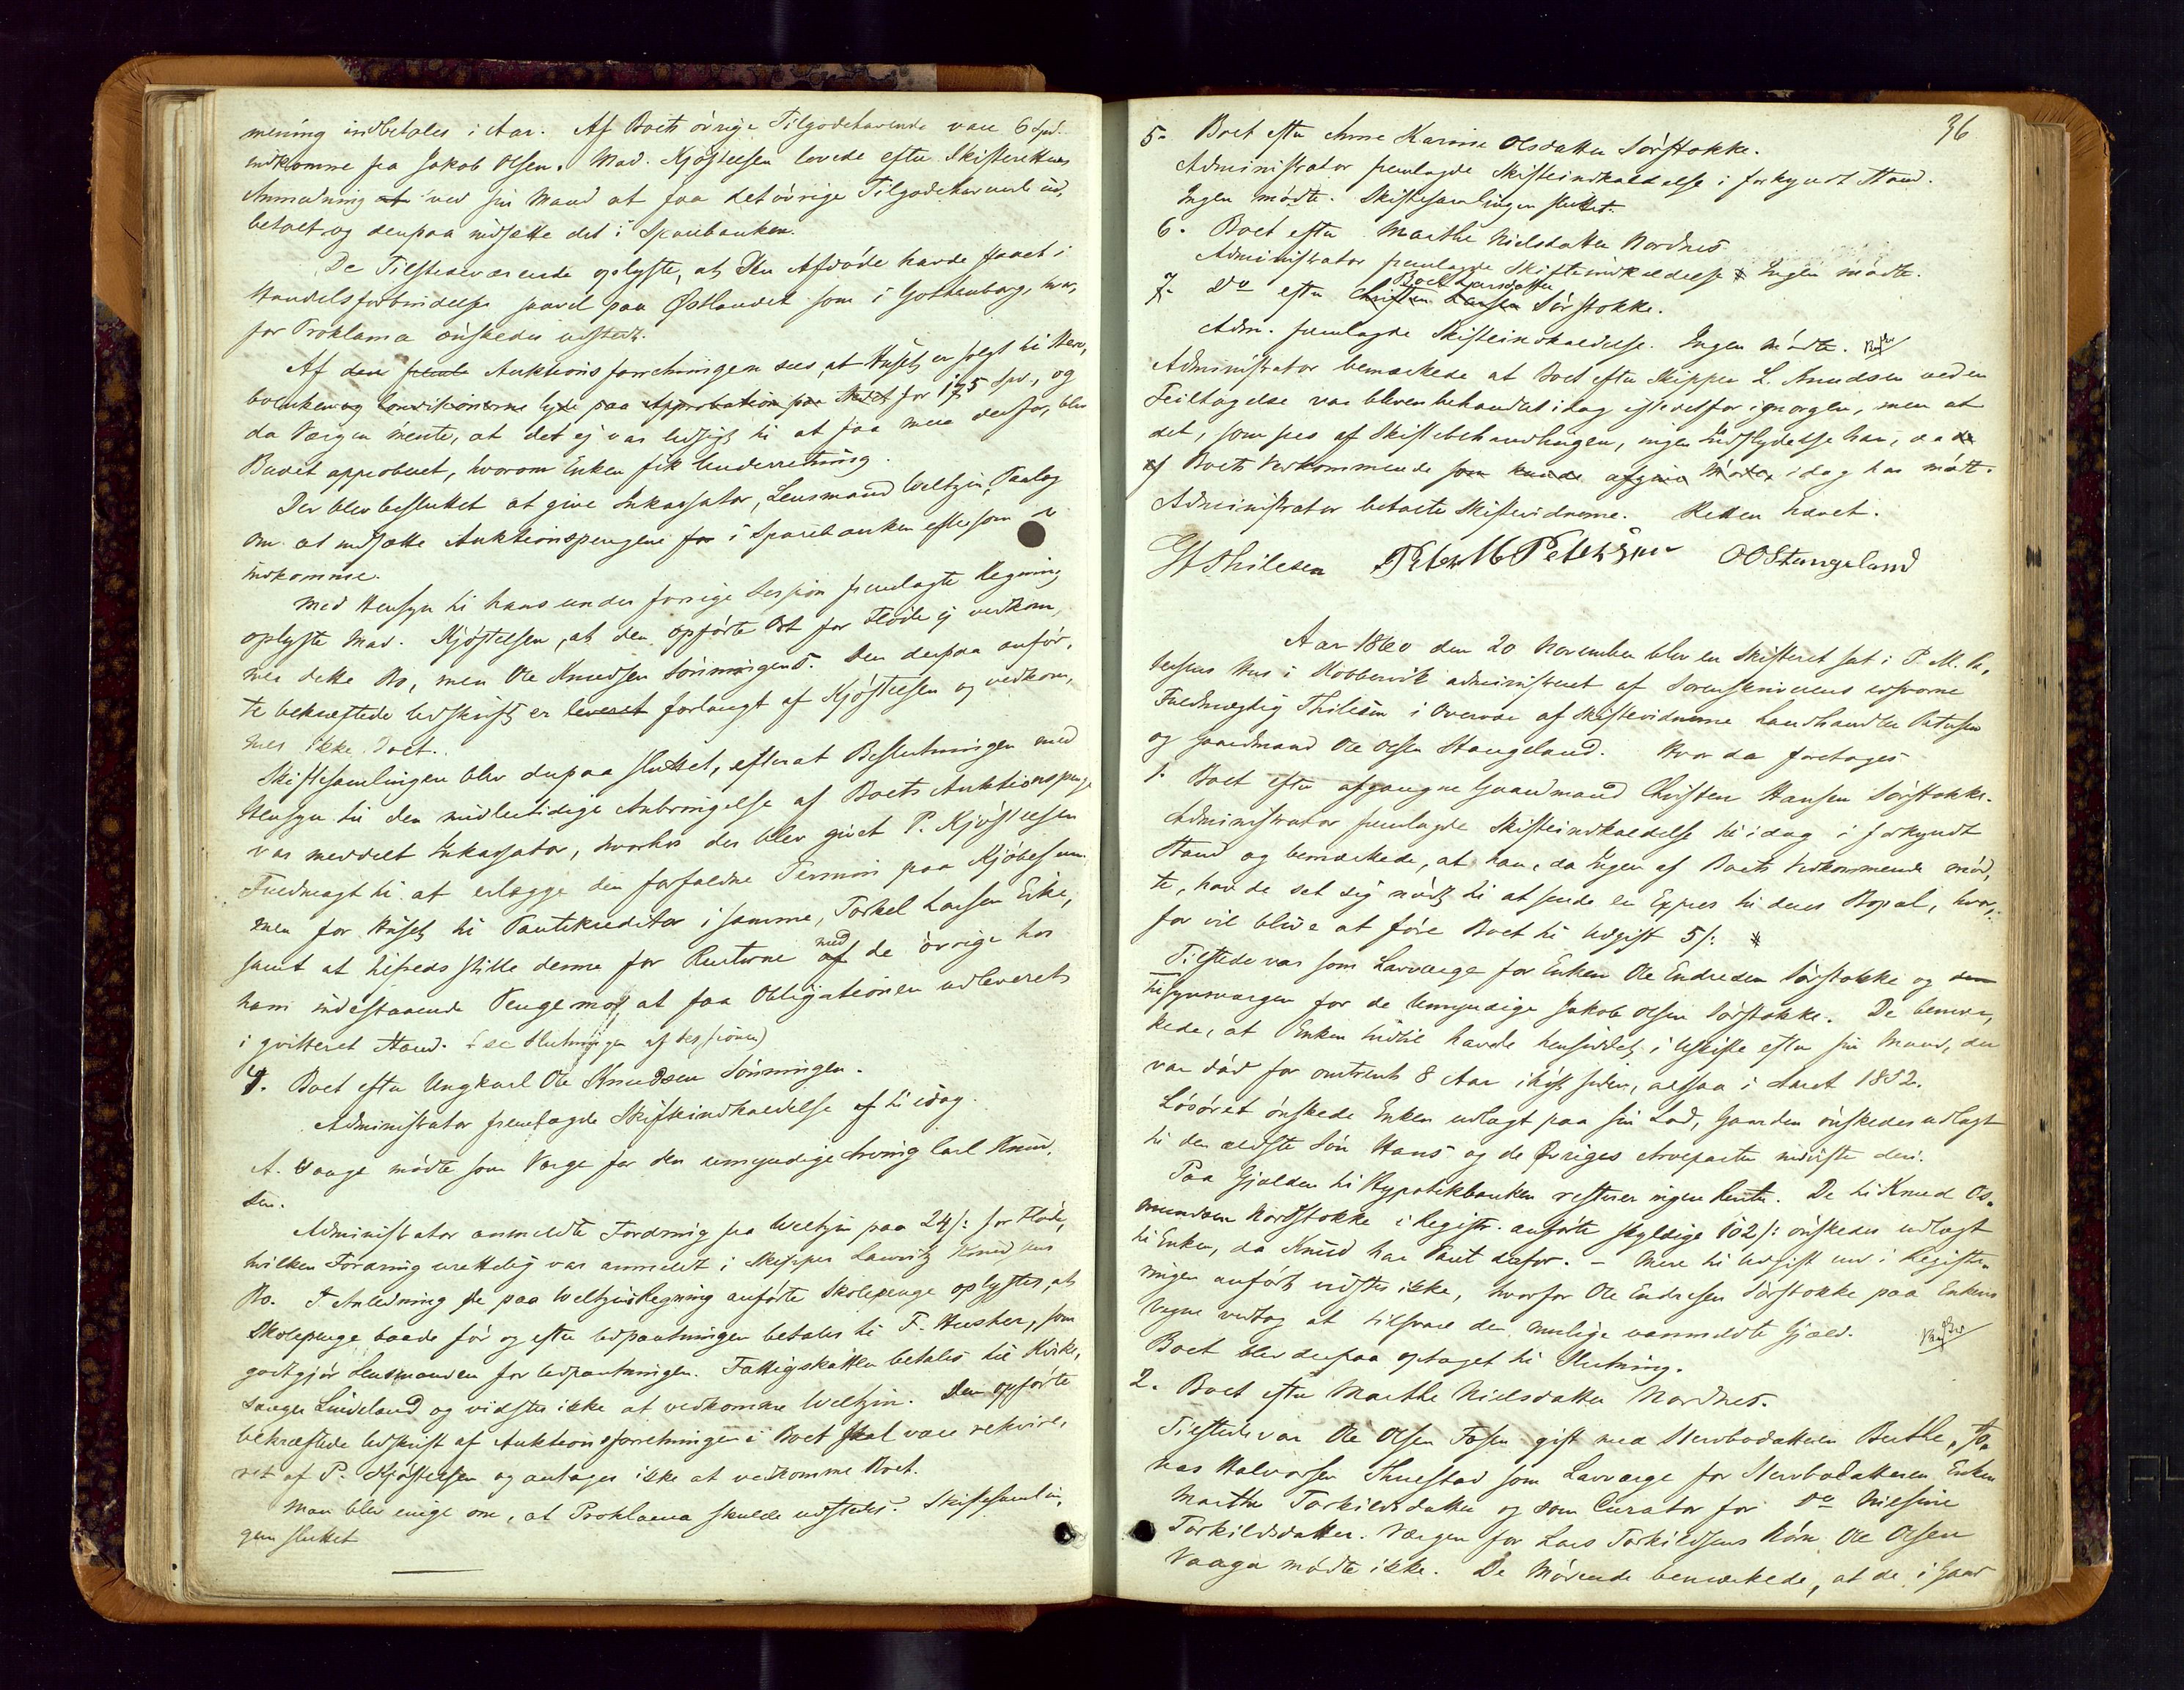 mening indbetales i Aar. Af Boets övrige Tilgodehavende vare 6 Spd.
indkomne fra Jakob Olsen. Mad. Kjöstelsen lovede efter Skifterettens
Anmodning at ved sin Mand at faa det övrige Tilgodehavende ud,
betalt og derpaa indsætte det i Sparebanken.
De Tilstedeværende oplyste, at Den Afdöde havde staaet i
Handelsforbindelse saavel paa Østlandet som i Gothenborg, hvor,
for Proklama önskedes udstedt.
Af den frem Auktionsforretningen sees, at Huset er solgt til
og Conditionerne lyde paa Approbation paa Stedet for 175 Spd., og
da Værgen mente, at det ej var udsigt til at faa mere derfor, blev
Budet approberet, hvorom Enken fik Underretning.
Der blev besluttet at give Inkassator, Lensmand Weltzin, Paalæg
om at indsætte Auktionspengene for i Sparebanken eftersom
indkomme.
Med Hensyn til hans under forrige Session fremlagte Regning
oplyste Mad. Kjöstelsen, at den opförte Ost for Flöde ej vedkom,
mer dette Bo, men Ole Knudsen Sönningens. Den derpaa anför,
te bekræftede Udskrift er leveret forlangt af Kjöstelsen og vedkom,
mer ikke Boet.
Skiftesamlingen blev derpaa sluttet, efterat Beslutningen med
Hensyn til den midlertidige Anbringelse af Boets Auktionspenge
var meddelt Inkassator, hvorhos der blev givet P. Kjöstelsen
Fuldmagt til at erlægge den forfaldne Termin paa Kjöbesum,
men for Huset til Pantekreditor i samme, Torkel Larsen Eike,
samt at tilfredsstille denne for Renterne af med de övrige hos
ham indestaaende Penge mod at faa Obligationen udleveret
i qvitteret Stand. (see Slutningen af Sessionen)
4. Boet efter Ungkarl Ole Knudsen Sönningen.
Administrator fremlagde Skifteindkaldelse af til idag.
A. Vaage mödte som Verge for den umyndige Arving Carl Knud,
sen.
Administrator anmeldte Fordring fra Weltzin paa 24 s: for Flöde,
hvilken Fordring urettelig var anmeldt i Skipper Lauritz Knudsens
Bo. I Anledning de paa Weltzins Regning anförte Skolepenge oplystes, at
Skolepenge baade för og efter Udpantningen betales til F. Husher, som
godtgjör Lensmanden for Udpantningen. Fattigskatten betales til Kirke,
sanger Lindeland og vidstes ikke at vedkomme Weltzin. Den opförte
bekræftede Udskrift af Auktionsforretningen i Boet skal være rekvire,
ret af P. Kjöstelsen og antages ikke at vedkomme Boet.
Man blev enige om, at Proklama skulde udstedes. Skiftesamlin,
gen sluttet
36
5. Boet efter Anne Karine Olsdatter Sörstokke.
Administrator fremlagde Skifteindkaldelse i forkyndt Stand.
Ingen mödte. Skiftesamlingen sluttet.
6. Boet efter Marthe Nielsdatter Nordnes
Administrator fremlagde Skifteindkaldelse Ingen mödte.
7. Do efter Christen Hansen Sörstokke.
Adm. fremlagde Skifteindkaldelse. Ingen mödte.
Administrator bemærkede at Boet efter Skipper L. Knudsen ved en
Feiltagelse var bleven behandlet idag istedetfor igmorgen, men at
det, som sees af Skiftebehandlingen, ingen Indflydelse har, da de
af Boets Vedkommende som kunde afgive Möde, idag har mödt.
Administrator betalte Skiftevidnerne. Retten hævet.
Thilesen Peter M Petersen OO Stangeland
Aar 1860 den 20 November blev en Skifteret sat i P. M. Pe,
tersens Hus i Kobbervik administreret af Sorenskriverens edsvorne
Fuldmægtig Thilesen i Overvær af Skiftevidnerne Landhandler Petersen
og Gaardmand Ole Olsen Stangeland. Hvor da foretoges
1. Boet efter afgangne Gaardmand Christen Hansen Sörstokke.
Administrator fremlagde Skifteindkaldelse til idag i forkyndt
Stand og bemærkede, at han, da Ingen af Boets Vedkommende möd,
te, havde set sig nödt til at sende en Expres til deres Bopæl, hvor,
for vil blive at före Boet til Udgift 5 s:
Tilstede var som Laværge for Enken Ole Endresen Sörstokke og den
Tilsynsværgen for de Umyndige Jakob Olsen Sörstokke. De bemær,
kede, at Enken hidtil havde hensiddet i Uskifte efter sin Mand, der
var död for omtrent 8 Aar i höst siden, altsaa i Aaret 1852.
Lösöret önskede Enken udlagt paa sin Lod, Gaarden önskedes udlagt
til den ældste Sön Hans og de Övriges Arveparter indeste deri.
Paa Gjælden til Hypothekbanken resterer ingen Rente. De til Knud Os,
mundsen Nordstokke i Registr. anförte skyldige 102 s: önskedes udlagt
til Enken, da Knud har Pant derfor. – Mere til Udgift end i Registre,
ringen anfört vidstes ikke, hvorfor Ole Endresen Sörstokke paa Enkens
Vegne vedtog at tilsvare den mulige uanmeldte Gjæld.
Boet blev derpaa optaget til Slutning.
2. Boet efter Marthe Nielsdatter Nordnes.
Tilstede var Ole Olsen Fosen gift med Stervbodatteren Berthe, Jo,
nas Halvorsen Thuestad som Laværge for Stervbodatteren Enken
Marthe Torkildsdatter og som Curator for Do Nielsine
Torkildsdatter. Værgen for Lars Torkildsens Börn Ole Olsen
Vaage mödte ikke. De Mödende bemærkede, at de i Gaar